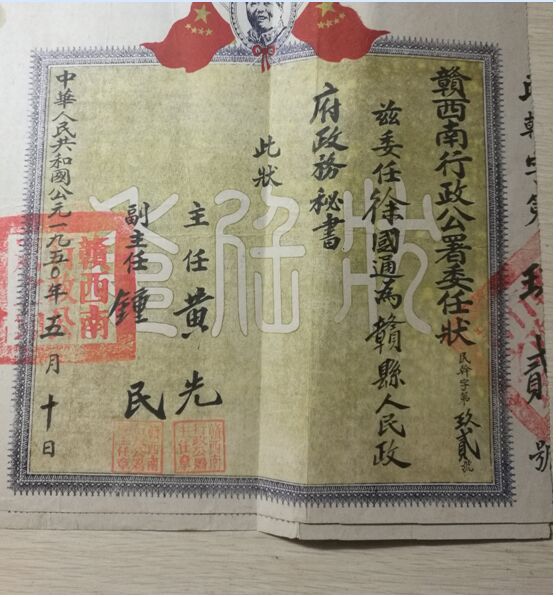 贛西南行政公署委任狀
民幹字第玖貳號
茲委任徐國通為贛縣人民政
府政務秘書
此狀
主任黃先
副主任鍾民
中華人民共和國公元一九五〇年五月十日
贛西南
贛西南
行政公署
主任章
號